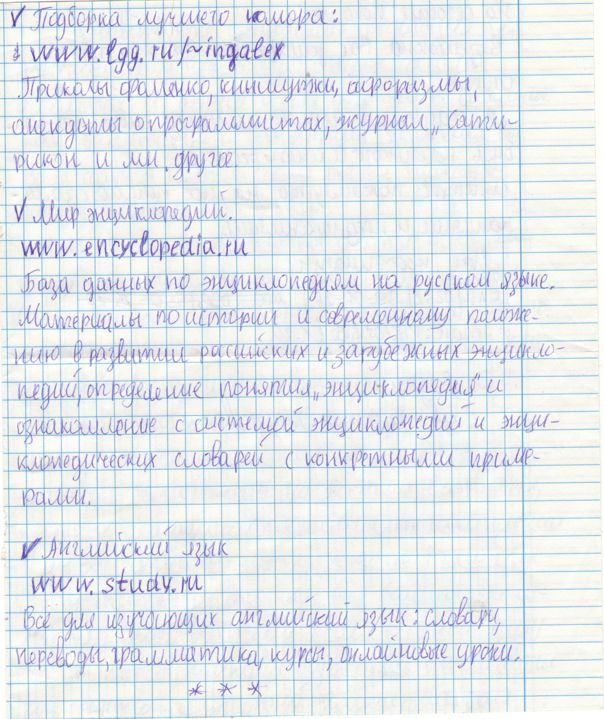 ✓ Подборка лучшего юмора:
www.lgg.ru/~ingalex
Приколы фоменко, книмутки, афоризмы,
анекдоты о программистах, журнал „Сати-
рикон и мн. другое
✓ Мир энциклопедий.
www.encyclopedia.ru
База данных по энциклопедиям на русском языке.
Материалы по истории и современному положе-
нию в развитии расийских и зарубежных энцикло-
педий, определение понятия „энциклопедия" и
ознакомление с системой энциклопедий и энци-
клопедических словарей с конкретными приме-
рами.
✓ Английский язык
www.study.ru
Всё для изучающих английский язык: словари,
переводы, грамматика, курсы, онлайновые уроки.
* * *